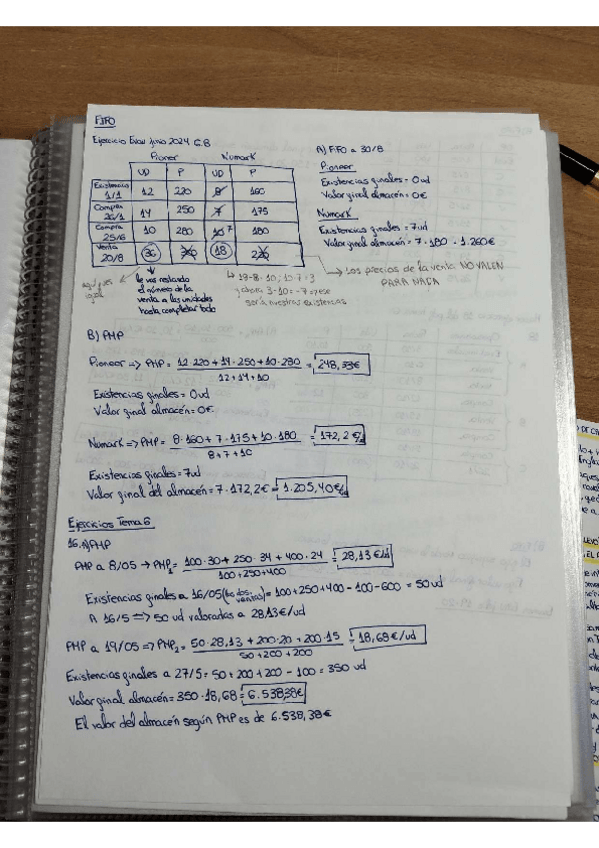 FIFO
Ejercicio Evau junio 2024 C.B
Pioner Numark
UD P UD P
Existencias 1/1 12 220 8 160
Compra 26/1 14 250 7 175
Compra 25/6 10 280 10 7 180
Venta 20/8 36 18
le vas restando
el número de la
venta a las unidades
hasta completar todo
18-8=10; 10-7=3
y ahora 3-10=-7 => ese
será nuestras existencias
Los precios de la venta NO VALEN
PARA NADA
A) FIFO a 30/8
Pioneer
Existencias finales = 0ud
Valor final almacén = 0€
Numark
Existencias finales = 7ud
Valor final almacén = 7·180 = 1.260€
B) PMP
Pioneer => PMP = 12·220+14·250+10·280 = 248,33€
12+14+10
Existencias finales = 0ud
Valor final almacén = 0€
Numark => PMP = 8·160+7·175+10·180 = 172,2€
8+7+10
Existencias finales = 7ud
Valor final del almacén = 7·172,2€ = 1.205,40€
Ejercicios Tema 6
16.A) PMP
PMP a 8/05 → PMP1 = 100·30+250·34+400·24 = 28,13€/ud
100+250+400
Existencias finales a 16/05 (las dos ventas) = 100+250+400-100-600 = 50ud
A 16/5 => 50 ud valoradas a 28,13€/ud
PMP a 19/05 => PMP2 = 50·28,13+200·20+200·15 = 18,68€/ud
50+200+200
Existencias finales a 27/5 = 50+200+200-100 = 350 ud
Valor final almacén = 350·18,68 = 6.538,38€
El valor del almacén según PMP es de 6.538,38€